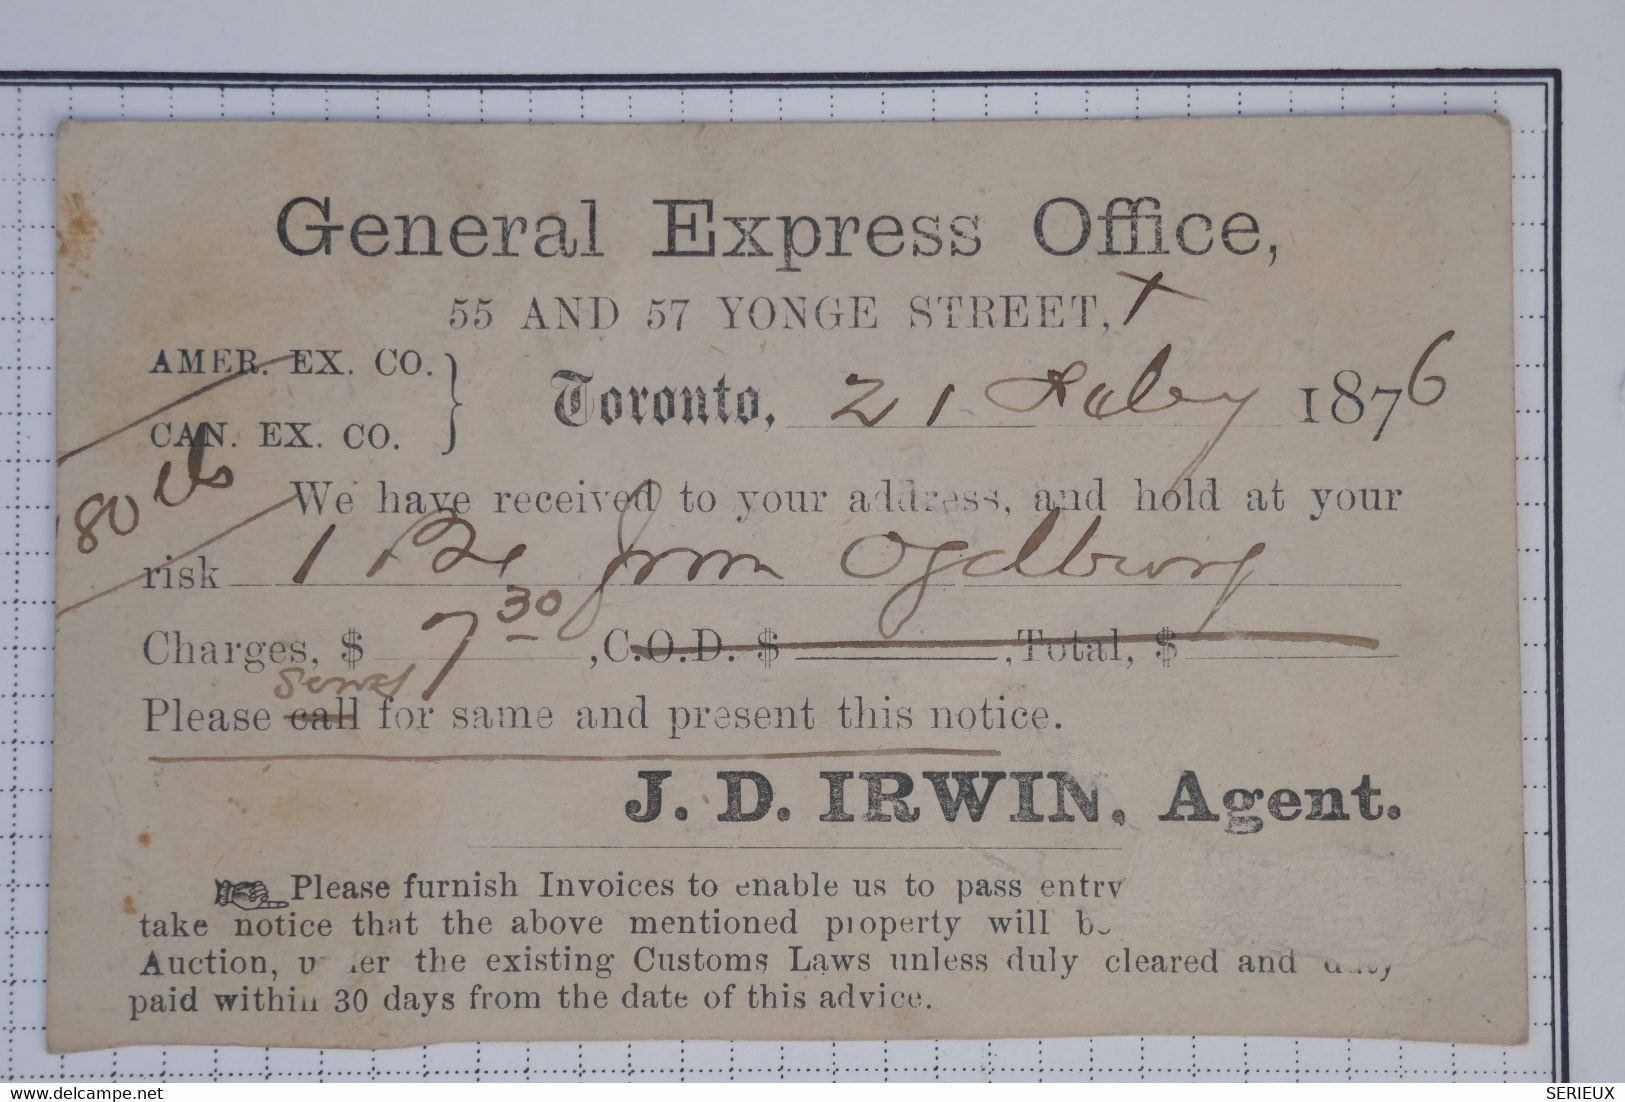 General Express Office,
55 AND 57 YONGE STREET,
AMER. EX. CO.
CAN. EX. CO.
Toronto, 21 1876
80
We have received to your address, and hold at your
risk 1 from Ogdburg
Charges, $ 7 30, C.O.D. $ , Total, $
Send
Please call for same and present this notice.
J. D. IRWIN, Agent.
Please furnish Invoices to enable us to pass entry
take notice that the above mentioned property will be
Auction, under the existing Customs Laws unless duly cleared and duty
paid within 30 days from the date of this advice.
delcampe.net
SERIEUX